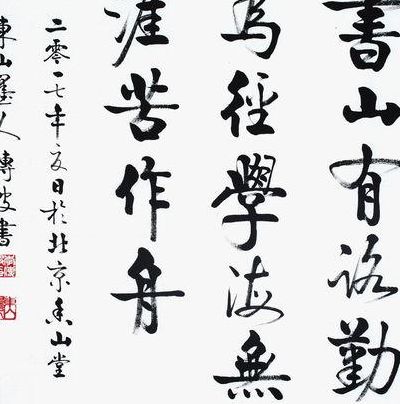 書山有路勤
為徑學海無
涯苦作舟
二零一七年夏日於北京香山堂
東山墨人書